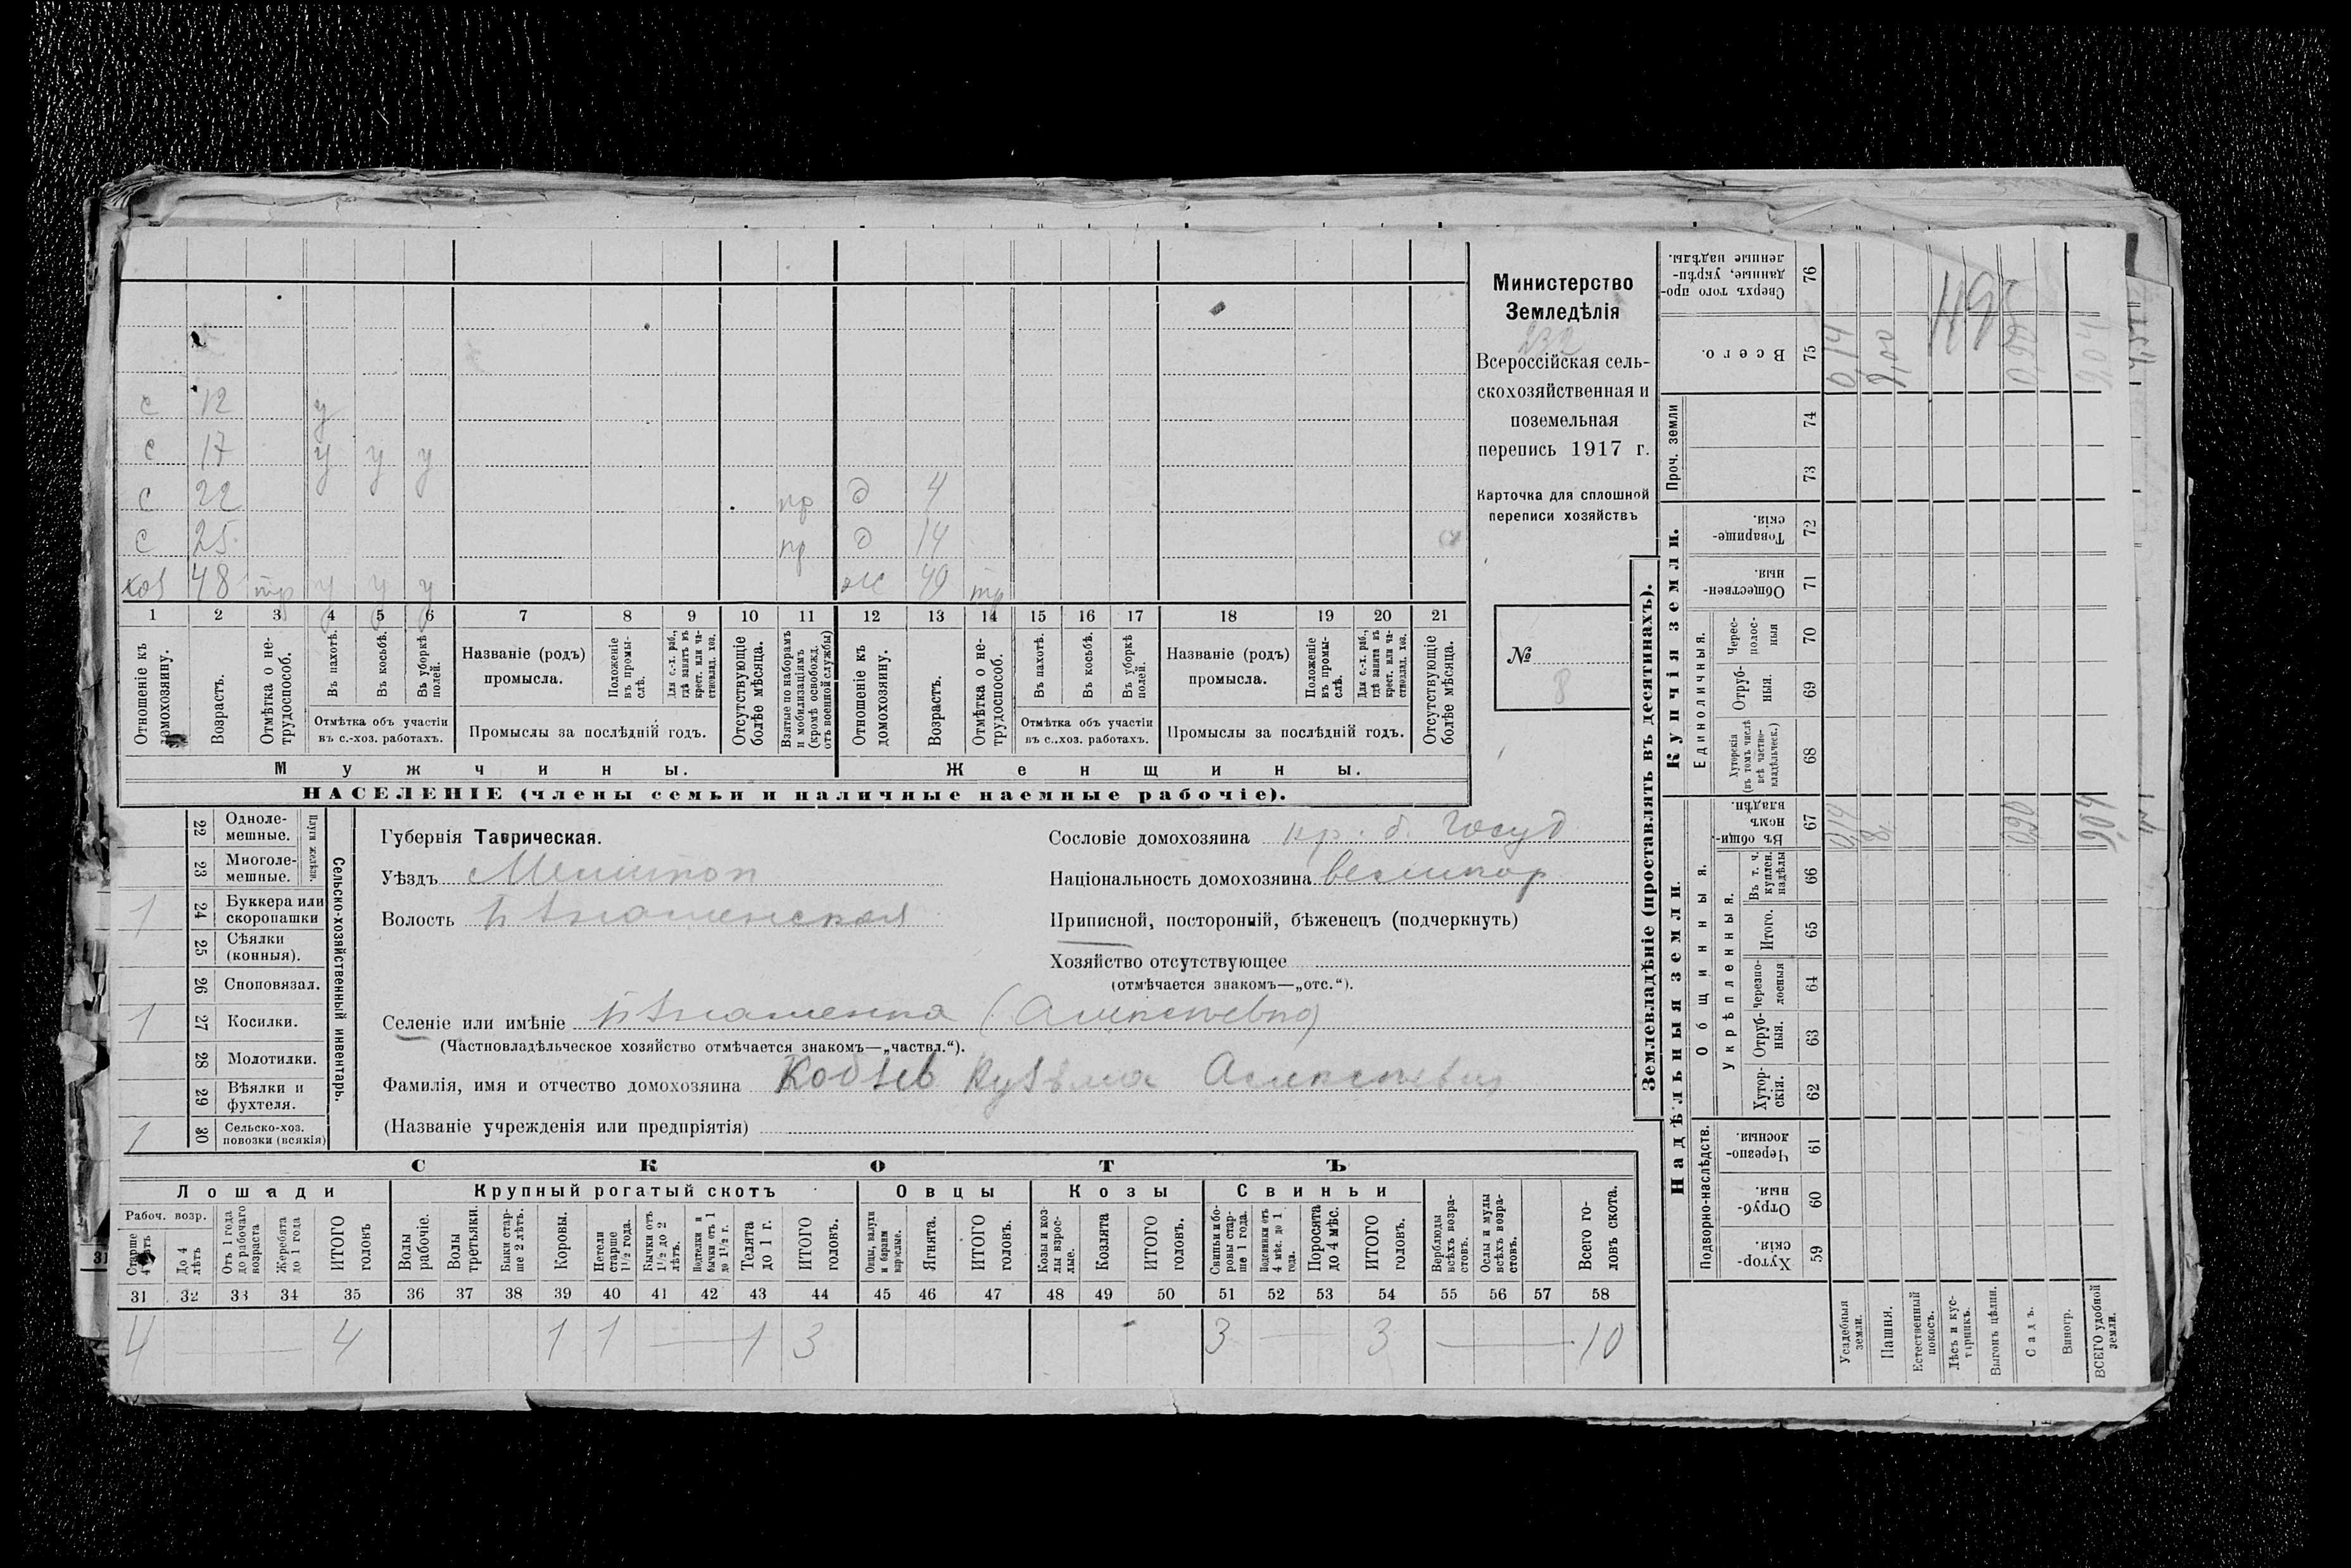 Министерство
Земледѣлія
232
Всероссійская сель-
скохозяйственная и
поземельная
перепись 1917 г.
Карточка для сплошной
переписи хозяйствъ
№
8
с 12 у
с 17 у у у
с 22 пр д 4
с 25 пр д 14
хоз 48 тр у у у ж 49 тр
1 2 3 4 5 6 7 8 9 10 11 12 13 14 15 16 17 18 19 20 21
Отношеніе къ домохозяину.
Возрастъ.
Отмѣтка о не-
трудоспособ.
Въ пахотѣ.
Въ косьбѣ.
Въ уборкѣ
полей.
Отмѣтка объ участіи
въ с.-хоз. работахъ.
Названіе (родъ)
промысла.
Положеніе
въ промы-
слѣ.
Для с.-х. раб.,
гдѣ занятъ въ
крест. или ча-
стновлад. хоз.
Промыслы за послѣдній годъ.
Отсутствующіе
болѣе мѣсяца.
Взятые по наборамъ
и мобилизаціямъ
(кромѣ освобожд.
отъ военной службы)
Отношеніе къ
домохозяину.
Возрастъ.
Отмѣтка о не-
трудоспособ.
Въ пахотѣ.
Въ косьбѣ.
Въ уборкѣ
полей.
Отмѣтка объ участіи
въ с.-хоз. работахъ.
Названіе (родъ)
промысла.
Положеніе
въ промы-
слѣ.
Для с.-х. раб.,
гдѣ занята въ
крест. или ча-
стновлад. хоз.
Промыслы за послѣдній годъ.
Отсутствующіе
болѣе мѣсяца.
Мужчины.
Женщины.
НАСЕЛЕНІЕ (члены семьи и наличные наемные рабочіе).
22 Одноле-
мешные.
23 Многоле-
мешные.
Плуги желѣзн.
1 24 Буккера или
скоропашки
25 Сѣялки
(конныя).
26 Сноповязал.
1 27 Косилки.
28 Молотилки.
29 Вѣялки и
фухтеля.
1 30 Сельско-хоз.
повозки (всякія)
Сельско-хозяйственный инвентарь.
Губернія Таврическая.
Уѣздъ Мелитоп
Волость Б Знаменская
Сословіе домохозяина кр. б. Госуд
Національность домохозяина великор
Приписной, посторонній, бѣженецъ (подчеркнуть)
Хозяйство отсутствующее
(отмѣчается знакомъ—„отс.“).
Селеніе или имѣніе Б Знаменка (Алексѣевка)
(Частновладѣльческое хозяйство отмѣчается знакомъ—„частвл.“).
Фамилія, имя и отчество домохозяина Кобзев Кузьма Алексѣевич
(Названіе учрежденія или предпріятія)
СКОТЪ
Лошади
Крупный рогатый скотъ
Овцы
Козы
Свиньи
Рабоч. возр.
Старше
4 лѣтъ
До 4
лѣтъ
Отъ 1 года
до рабочаго
возраста
Жеребята
до 1 года
ИТОГО
головъ
Волы
рабочіе.
Волы
третьяки.
Быки стар-
ше 2 лѣтъ.
Коровы.
Нетели
старше
1½ года.
Бычки отъ
1½ до 2
лѣтъ.
Подтелки и
бычки отъ 1
до 1½ г.
Телята
до 1 г.
ИТОГО
головъ.
Овцы, валухи
и бараны
взрослые.
Ягнята.
ИТОГО
головъ.
Козы и коз-
лы взрос-
лые.
Козлята
ИТОГО
головъ.
Свиньи и бо-
ровы стар-
ше 1 года.
Подсвинки отъ
4 мѣс. до 1
года.
Поросята
до 4 мѣс.
ИТОГО
головъ.
Верблюды
всѣхъ возра-
стовъ.
Ослы и мулы
всѣхъ возра-
стовъ.
Всего го-
ловъ скота.
31 32 33 34 35 36 37 38 39 40 41 42 43 44 45 46 47 48 49 50 51 52 53 54 55 56 57 58
4 — — — 4 1 1 — 1 3 3 — 3 — 10
Землевладѣніе (проставлять въ десятинахъ).
Купчія земли.
Надѣльныя земли.
Сверхъ того про-
данные, укрѣп-
ленные надѣлы.
76
Всего.
75
Проч. земли
74
73
Товарище-
скія.
72
Обществен-
ныя.
71
Единоличныя.
Черес-
полос-
ныя
70
Отруб-
ныя.
69
Хуторскія
(въ томъ числѣ
всѣ частно-
владѣльческ.)
68
Общинныя.
Въ общин-
номъ
владѣн.
67
Укрѣпленныя.
Въ т. ч.
куплен.
надѣлы
66
Итого.
65
Черезпо-
лосныя
64
Отруб-
ныя.
63
Хутор-
скія.
62
Подворно-наслѣдств.
Черезпо-
лосныя.
61
Отруб-
ныя.
60
Хутор-
скія.
59
Усадебныя
земли.
Пашня.
Естественный
покосъ.
Лѣсъ и кус-
тарникъ.
Выгонъ цѣлин.
Садъ.
Виногр.
ВСЕГО удобной
земли.
0,14
0,90
9,04